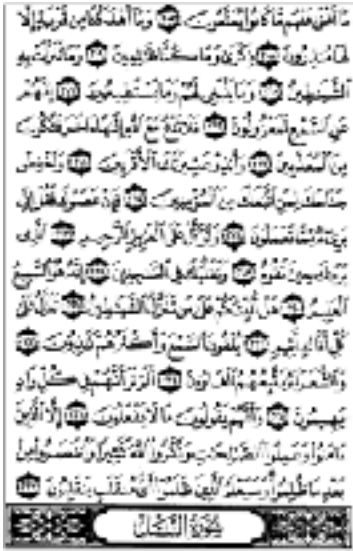 مَآ أَغْنَىٰ عَنْهُم مَّا كَانُوا۟ يُمَتَّعُونَ وَمَآ أَهْلَكْنَا مِن قَرْيَةٍ إِلَّا
لَهَا مُنذِرُونَ ذِكْرَىٰ وَمَا كُنَّا ظَـٰلِمِينَ وَمَا تَنَزَّلَتْ بِهِ
ٱلشَّيَـٰطِينُ وَمَا يَنۢبَغِى لَهُمْ وَمَا يَسْتَطِيعُونَ إِنَّهُمْ
عَنِ ٱلسَّمْعِ لَمَعْزُولُونَ فَلَا تَدْعُ مَعَ ٱللَّهِ إِلَـٰهًا ءَاخَرَ فَتَكُونَ
مِنَ ٱلْمُعَذَّبِينَ وَأَنذِرْ عَشِيرَتَكَ ٱلْأَقْرَبِينَ وَٱخْفِضْ
جَنَاحَكَ لِمَنِ ٱتَّبَعَكَ مِنَ ٱلْمُؤْمِنِينَ فَإِنْ عَصَوْكَ فَقُلْ إِنِّى
بَرِىٓءٌ مِّمَّا تَعْمَلُونَ وَتَوَكَّلْ عَلَى ٱلْعَزِيزِ ٱلرَّحِيمِ ٱلَّذِى
يَرَىٰكَ حِينَ تَقُومُ وَتَقَلُّبَكَ فِى ٱلسَّـٰجِدِينَ إِنَّهُۥ هُوَ ٱلسَّمِيعُ
ٱلْعَلِيمُ هَلْ أُنَبِّئُكُمْ عَلَىٰ مَن تَنَزَّلُ ٱلشَّيَـٰطِينُ تَنَزَّلُ عَلَىٰ
كُلِّ أَفَّاكٍ أَثِيمٍ يُلْقُونَ ٱلسَّمْعَ وَأَكْثَرُهُمْ كَـٰذِبُونَ
وَٱلشُّعَرَآءُ يَتَّبِعُهُمُ ٱلْغَاوُۥنَ أَلَمْ تَرَ أَنَّهُمْ فِى كُلِّ وَادٍ
يَهِيمُونَ وَأَنَّهُمْ يَقُولُونَ مَا لَا يَفْعَلُونَ إِلَّا ٱلَّذِينَ
ءَامَنُوا۟ وَعَمِلُوا۟ ٱلصَّـٰلِحَـٰتِ وَذَكَرُوا۟ ٱللَّهَ كَثِيرًا وَٱنتَصَرُوا۟ مِنۢ
بَعْدِ مَا ظُلِمُوا۟ وَسَيَعْلَمُ ٱلَّذِينَ ظَلَمُوٓا۟ أَىَّ مُنقَلَبٍ يَنقَلِبُونَ
سُورَةُ النَّمْلِ